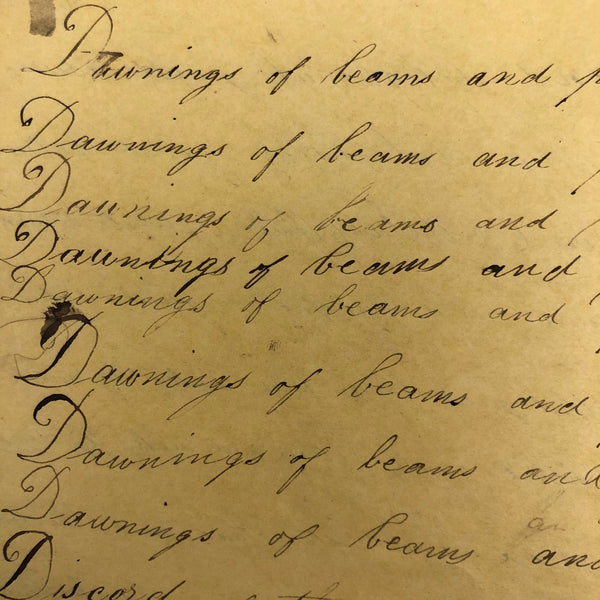 Dawnings of beams and
Dawnings of beams and
Dawnings of beams and
Dawnings of beams and
Dawnings of beams and
Dawnings of beams and
Dawnings of beams and
Dawnings of beams and
Discord